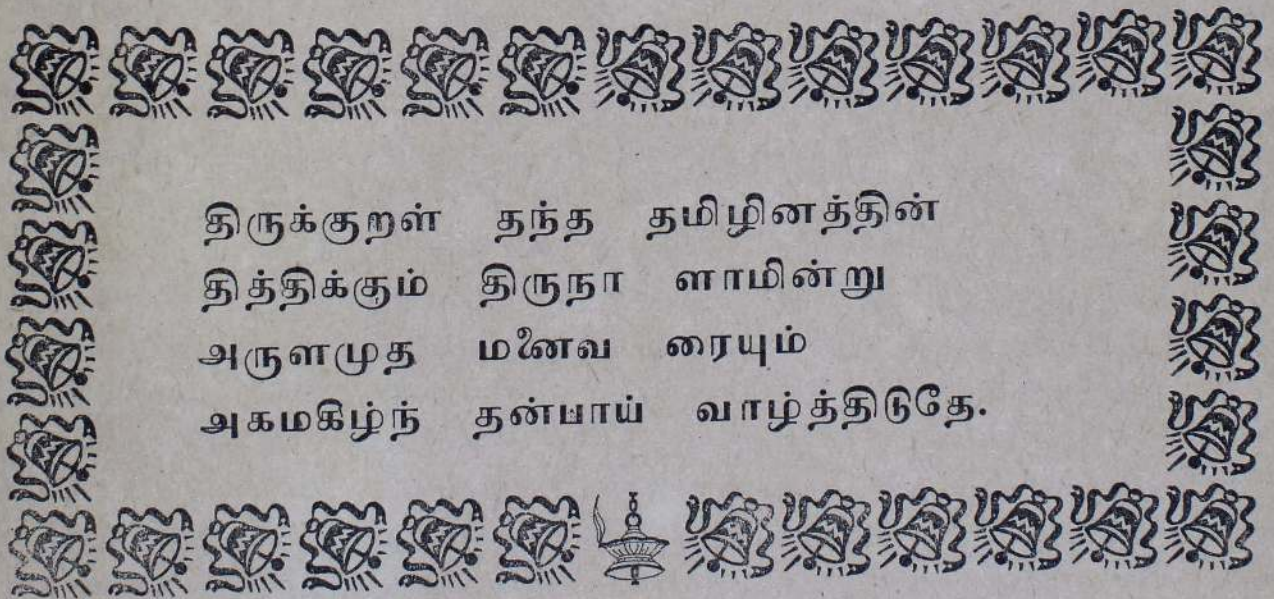 திருக்குறள் தந்த தமிழினத்தின்
தித்திக்கும் திருநா ளாமின்று
அருளமுத மனைவ ரையும்
அகமகிழ்ந் தன்பாய் வாழ்த்திடுதே.